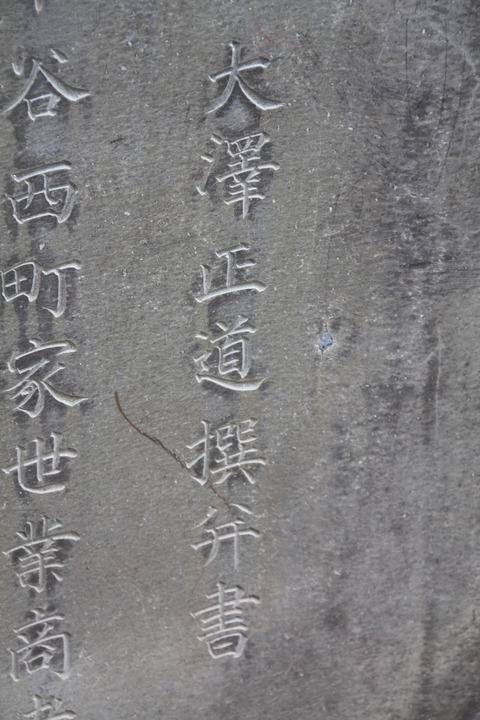 大澤正道撰并書
谷西町家世業商